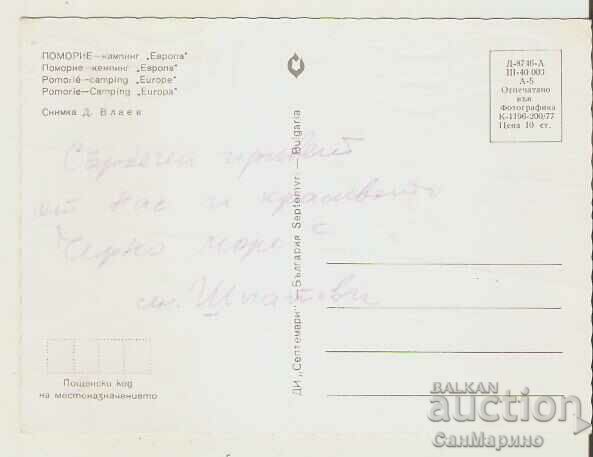 ПОМОРИЕ—кампинг „Европа"
Поморие—кемпинг „Европа"
Pomorié—camping „Europe"
Pomorie—Camping „Europa"
Снимка Д. Влаев
Д-8746-А
Ш-40 000
А-5
Отпечатано
във
Фотографика
К-1196-200/77
Цена 10 ст.
Сърдечни привети
от нас и красивото
Черно море
сем. Шпатови
ДИ „Септември" — България Septemvri — Bulgaria
Пощенски код
на местоназначението
BALKAN
auction
СанМарино